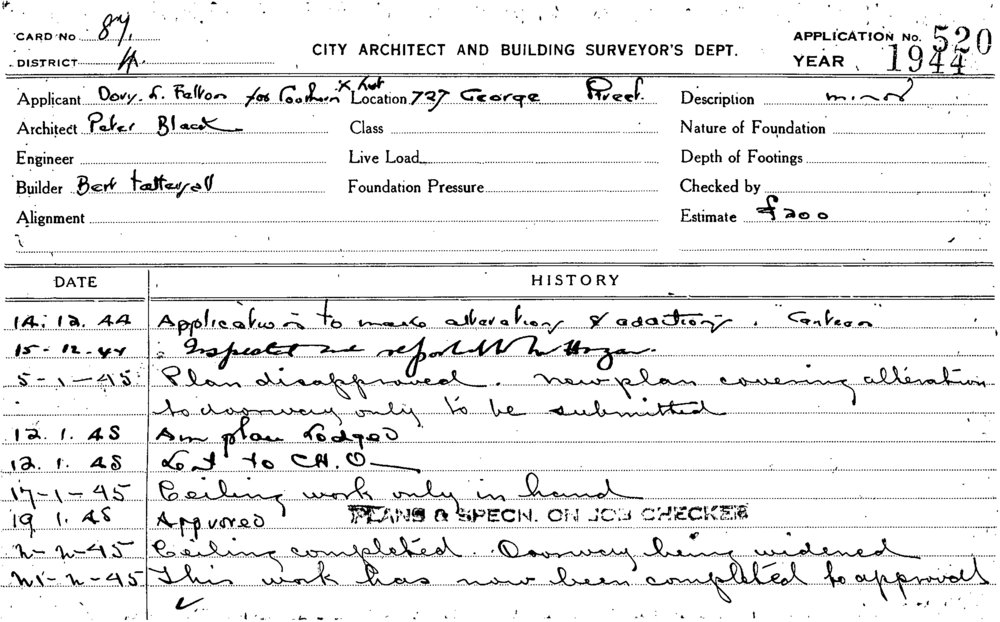 CARD No 87.
DISTRICT 4.
CITY ARCHITECT AND BUILDING SURVEYOR'S DEPT.
APPLICATION No. 520
YEAR 1944
Applicant Dovy. S. Felton for Location 727 George Street.
Description minor
Architect Peter Black
Class
Nature of Foundation
Engineer
Live Load
Depth of Footings
Builder Bert Tattersall
Foundation Pressure
Checked by
Alignment
Estimate £200
DATE HISTORY
14. 12. 44 Application to make alterations & additions. Canteen
15-12-44 Inspected and reported to Mr Hogan.
5-1-45 Plan disapproved. New plan covering alteration
to doorway only to be submitted
12. 1. 45 Am plan Lodged
12. 1. 45 to C.H.O
17-1-45 Ceiling work only in hand
19 1. 45 Approved PLANS & SPECN. ON JOB CHECKED
2-2-45 Ceiling completed. Doorway being widened
21-2-45 This work has now been completed to approval